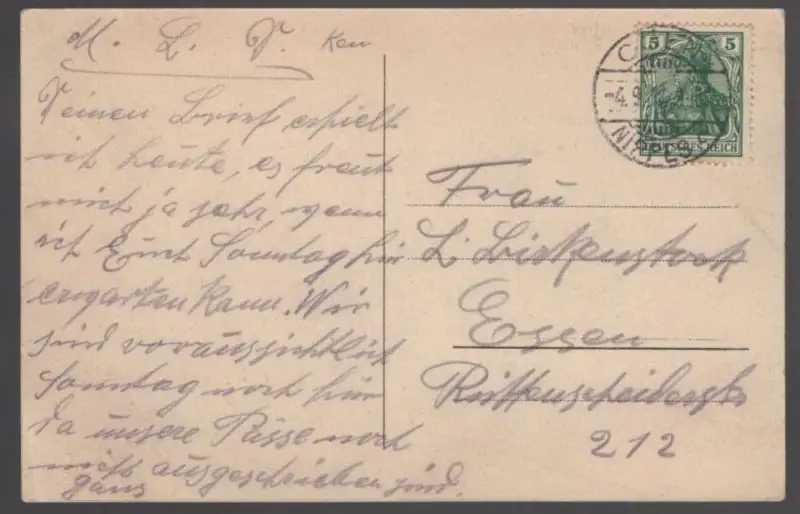 M. L. V.
Deinen Brief erhielt
ich heute, es freut
mich ja sehr, wenn
ich Euch Sonntag hier
erwarten kann. Wir
sind voraussichtlich
Sonntag noch hier
da unsere Pässe noch
nicht ausgeschrieben sind.
ganz
5 5
DEUTSCHES REICH
NIPPES
Frau
L. Birkenstock
Essen
Rüttenscheiderstr
212